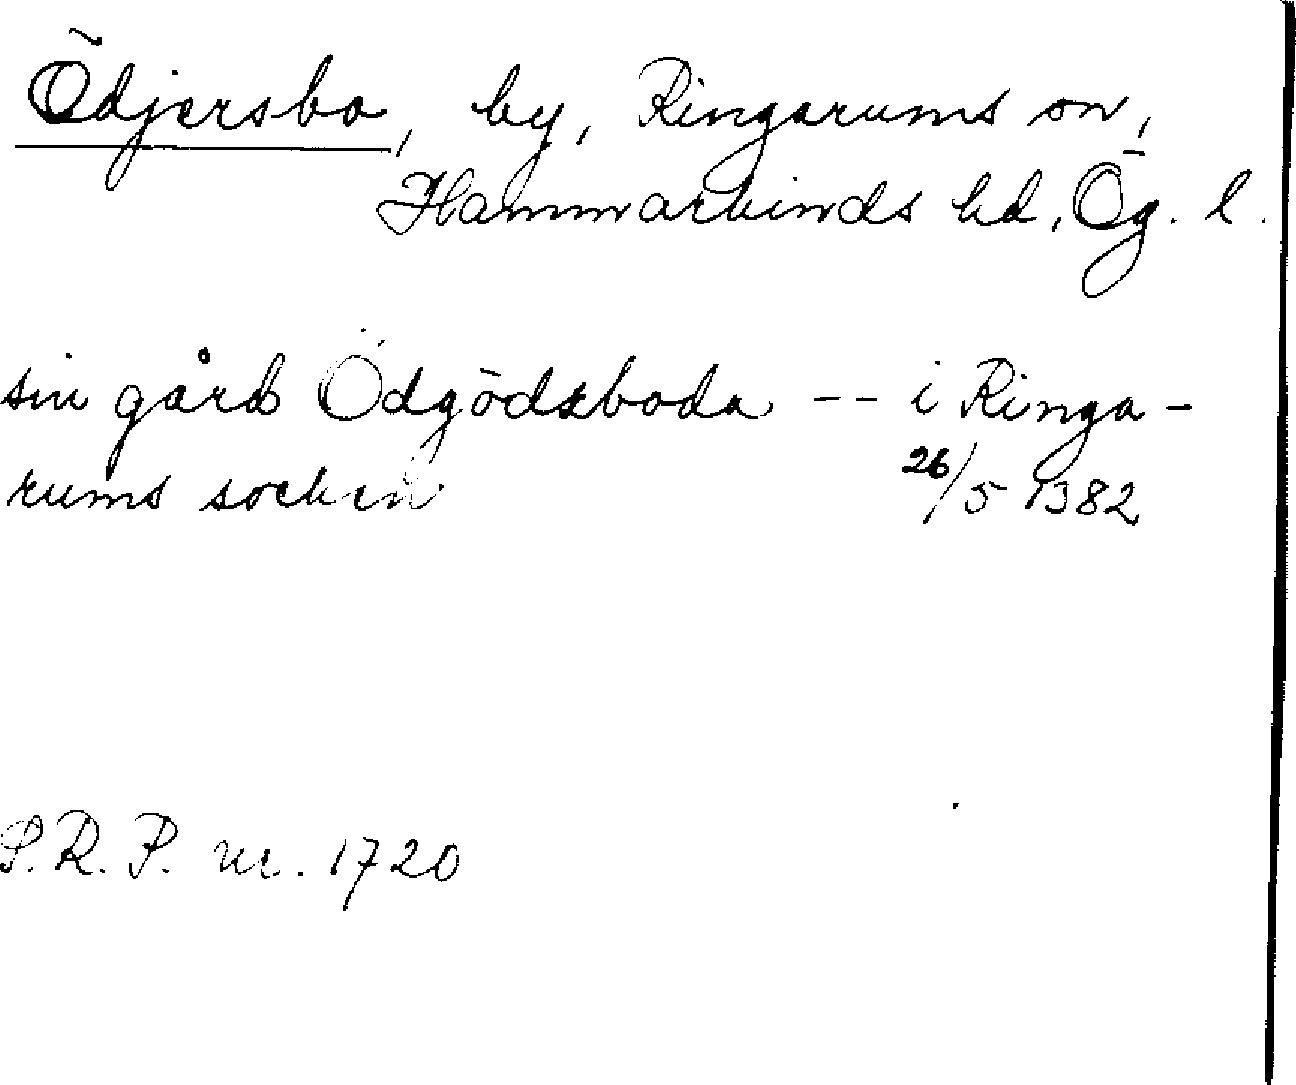 Ödjersbo, by, Ringarums sn,
Hammarkinds hd, Ög. l.
sin gård Ödgödsboda -- i Ringa-
rums socken 26/5 1382
S.R.P. nr. 1720